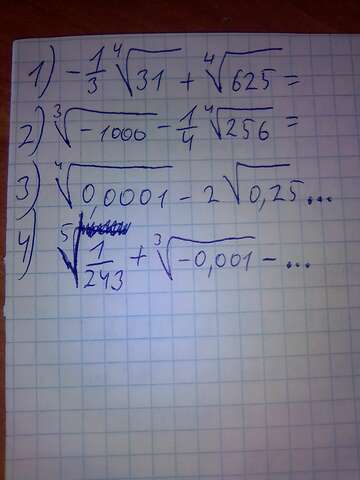 1) -1/3 ∜31 + ∜625 =
2) ∛-1000 - 1/4 ∜256 =
3) ∜0,0001 - 2√0,25...
4) ⁵√1/243 + ∛-0,001 - ...